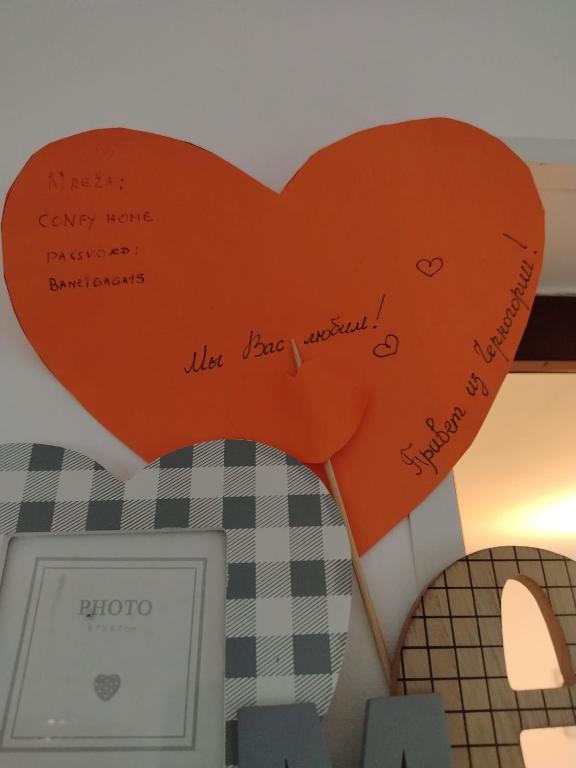 MREŽA:
CONFY HOME
PASSVORD:
BANEIGAGA15
Мы Вас любим!
Привет из Черногории!
PHOTO